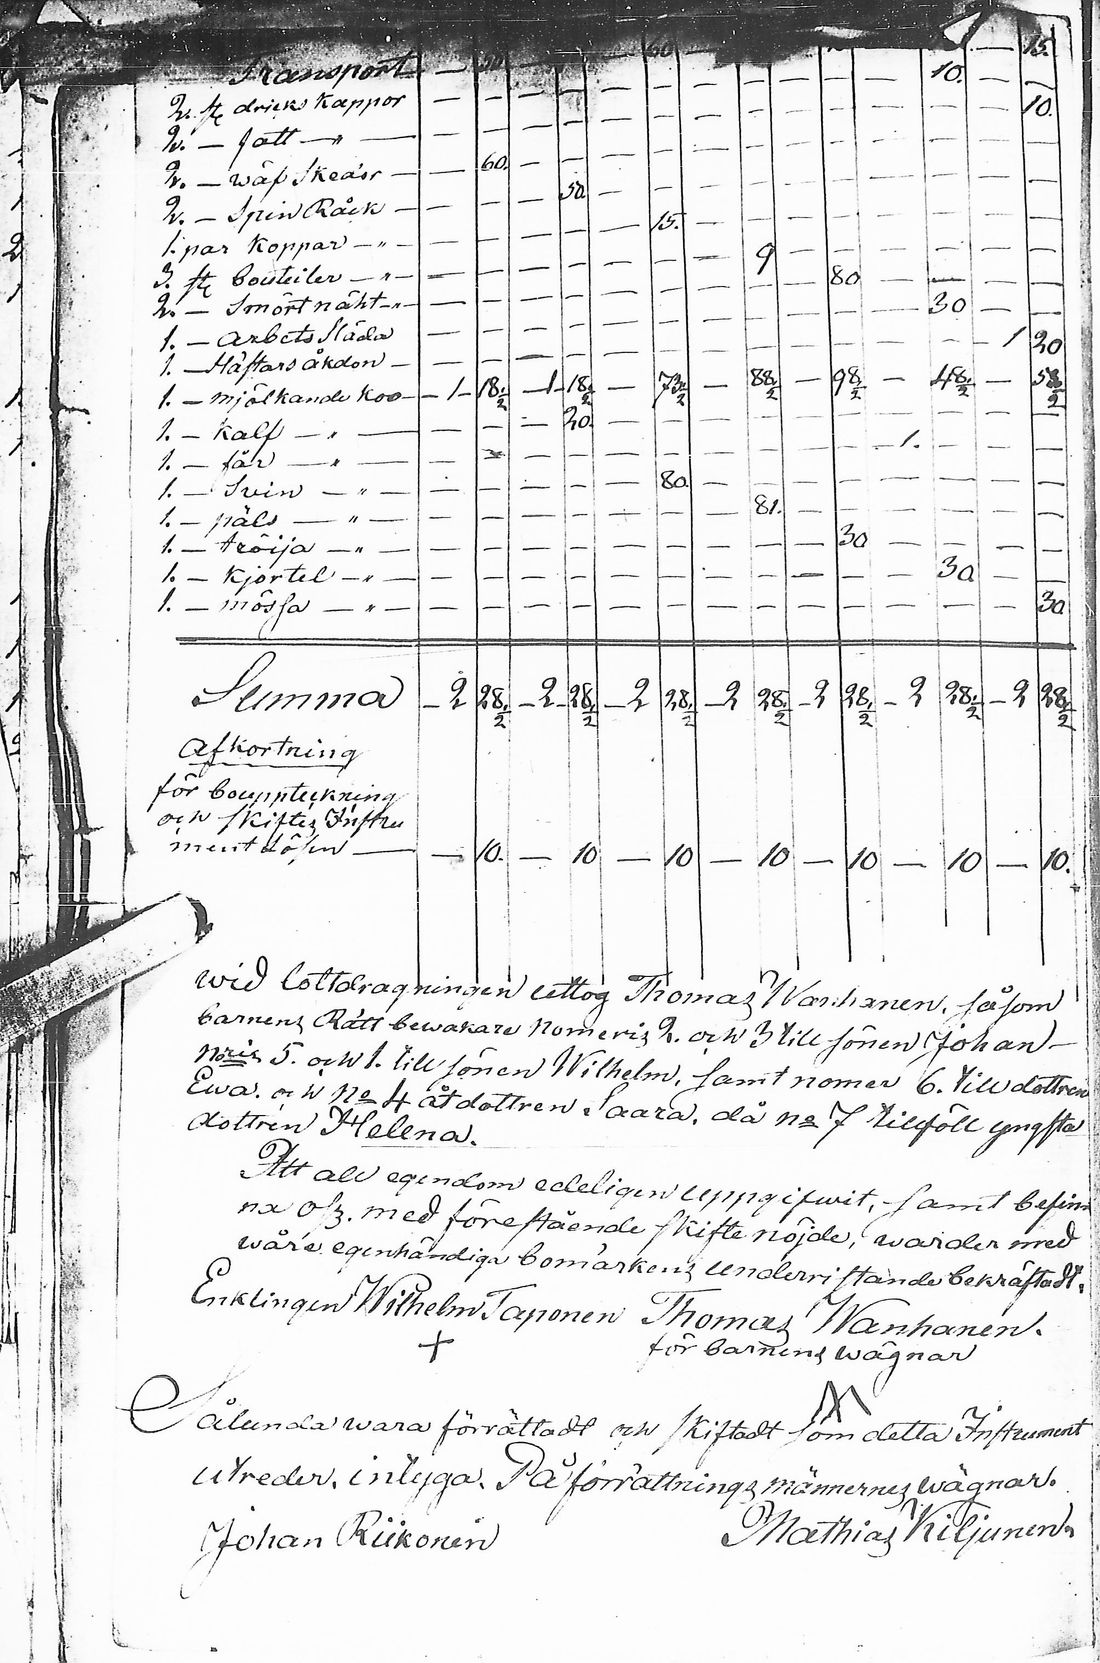 Transport — 60 — 15.
2. st dricks Kappor — — — — — — 10. — —
2. — fatt — " — — — — — — — — 10.
2. — wäf Skedar — — 60. — —
2. — Spin Råck — — — 50 — —
1. par Koppar — " — — — — 15. — —
3. st bouteiler — " — — — — — 9 — —
2. — Smört näht — " — — — — — — 80 — —
1. — arbets Släda — — — — — — 30 — —
1. — Häftars åkdon — — — — — — — 1 20
1. — mjölkande koo — 1 — 18 1/2 — 1 — 18 1/2 — 73 1/2 — 88 1/2 — 98 1/2 — 48 1/2 — 58 1/2
1. — Kalf — " — — — — 20. — —
1. — får — " — — — — — — 1. — —
1. — Svin — " — — — — 80. — —
1. — päls — " — — — — — 81. — —
1. — tröija — " — — — — — — 30 — —
1. — Kjortel — " — — — — — — — 30 — —
1. — mössa — " — — — — — — — — 30
Summa — 2 28 1/2 — 2 — 28 1/2 — 2 28 1/2 — 2 28 1/2 — 2 28 1/2 — 2 28 1/2 — 2 28 1/2
Afkortning
för bouppteckning
och skiftes Instru
ment lösen — — 10. — 10 — 10 — 10 — 10 — 10 — 10.
wid lottdragningen uttog Thomas Wanhanen, såsom
barnens Rätt bewakare nomeris 2. och 3 till sönen Johan —
Noris 5. och 1. till sönen Wilhelm, samt nomer 6. till dottren
Ewa. och No 4 åt dottren Saara, då No 7 tillföll yngsta
dottren Helena.
Att all egendom edeligen uppgifwit, samt befin
na oss. med förestående skifte nöjde, warder med
wåre egenhändiga bomärkens underristande bekräftadt.
Enklingen Wilhelm Taponen Thomas Wanhanen.
för barnens wägnar
Sålunda wara förrättadt och skiftadt som detta Instrument
utreder, intyga. På förrättnings männernes wägnar.
Johan Riikonen Mathias Kiljunen